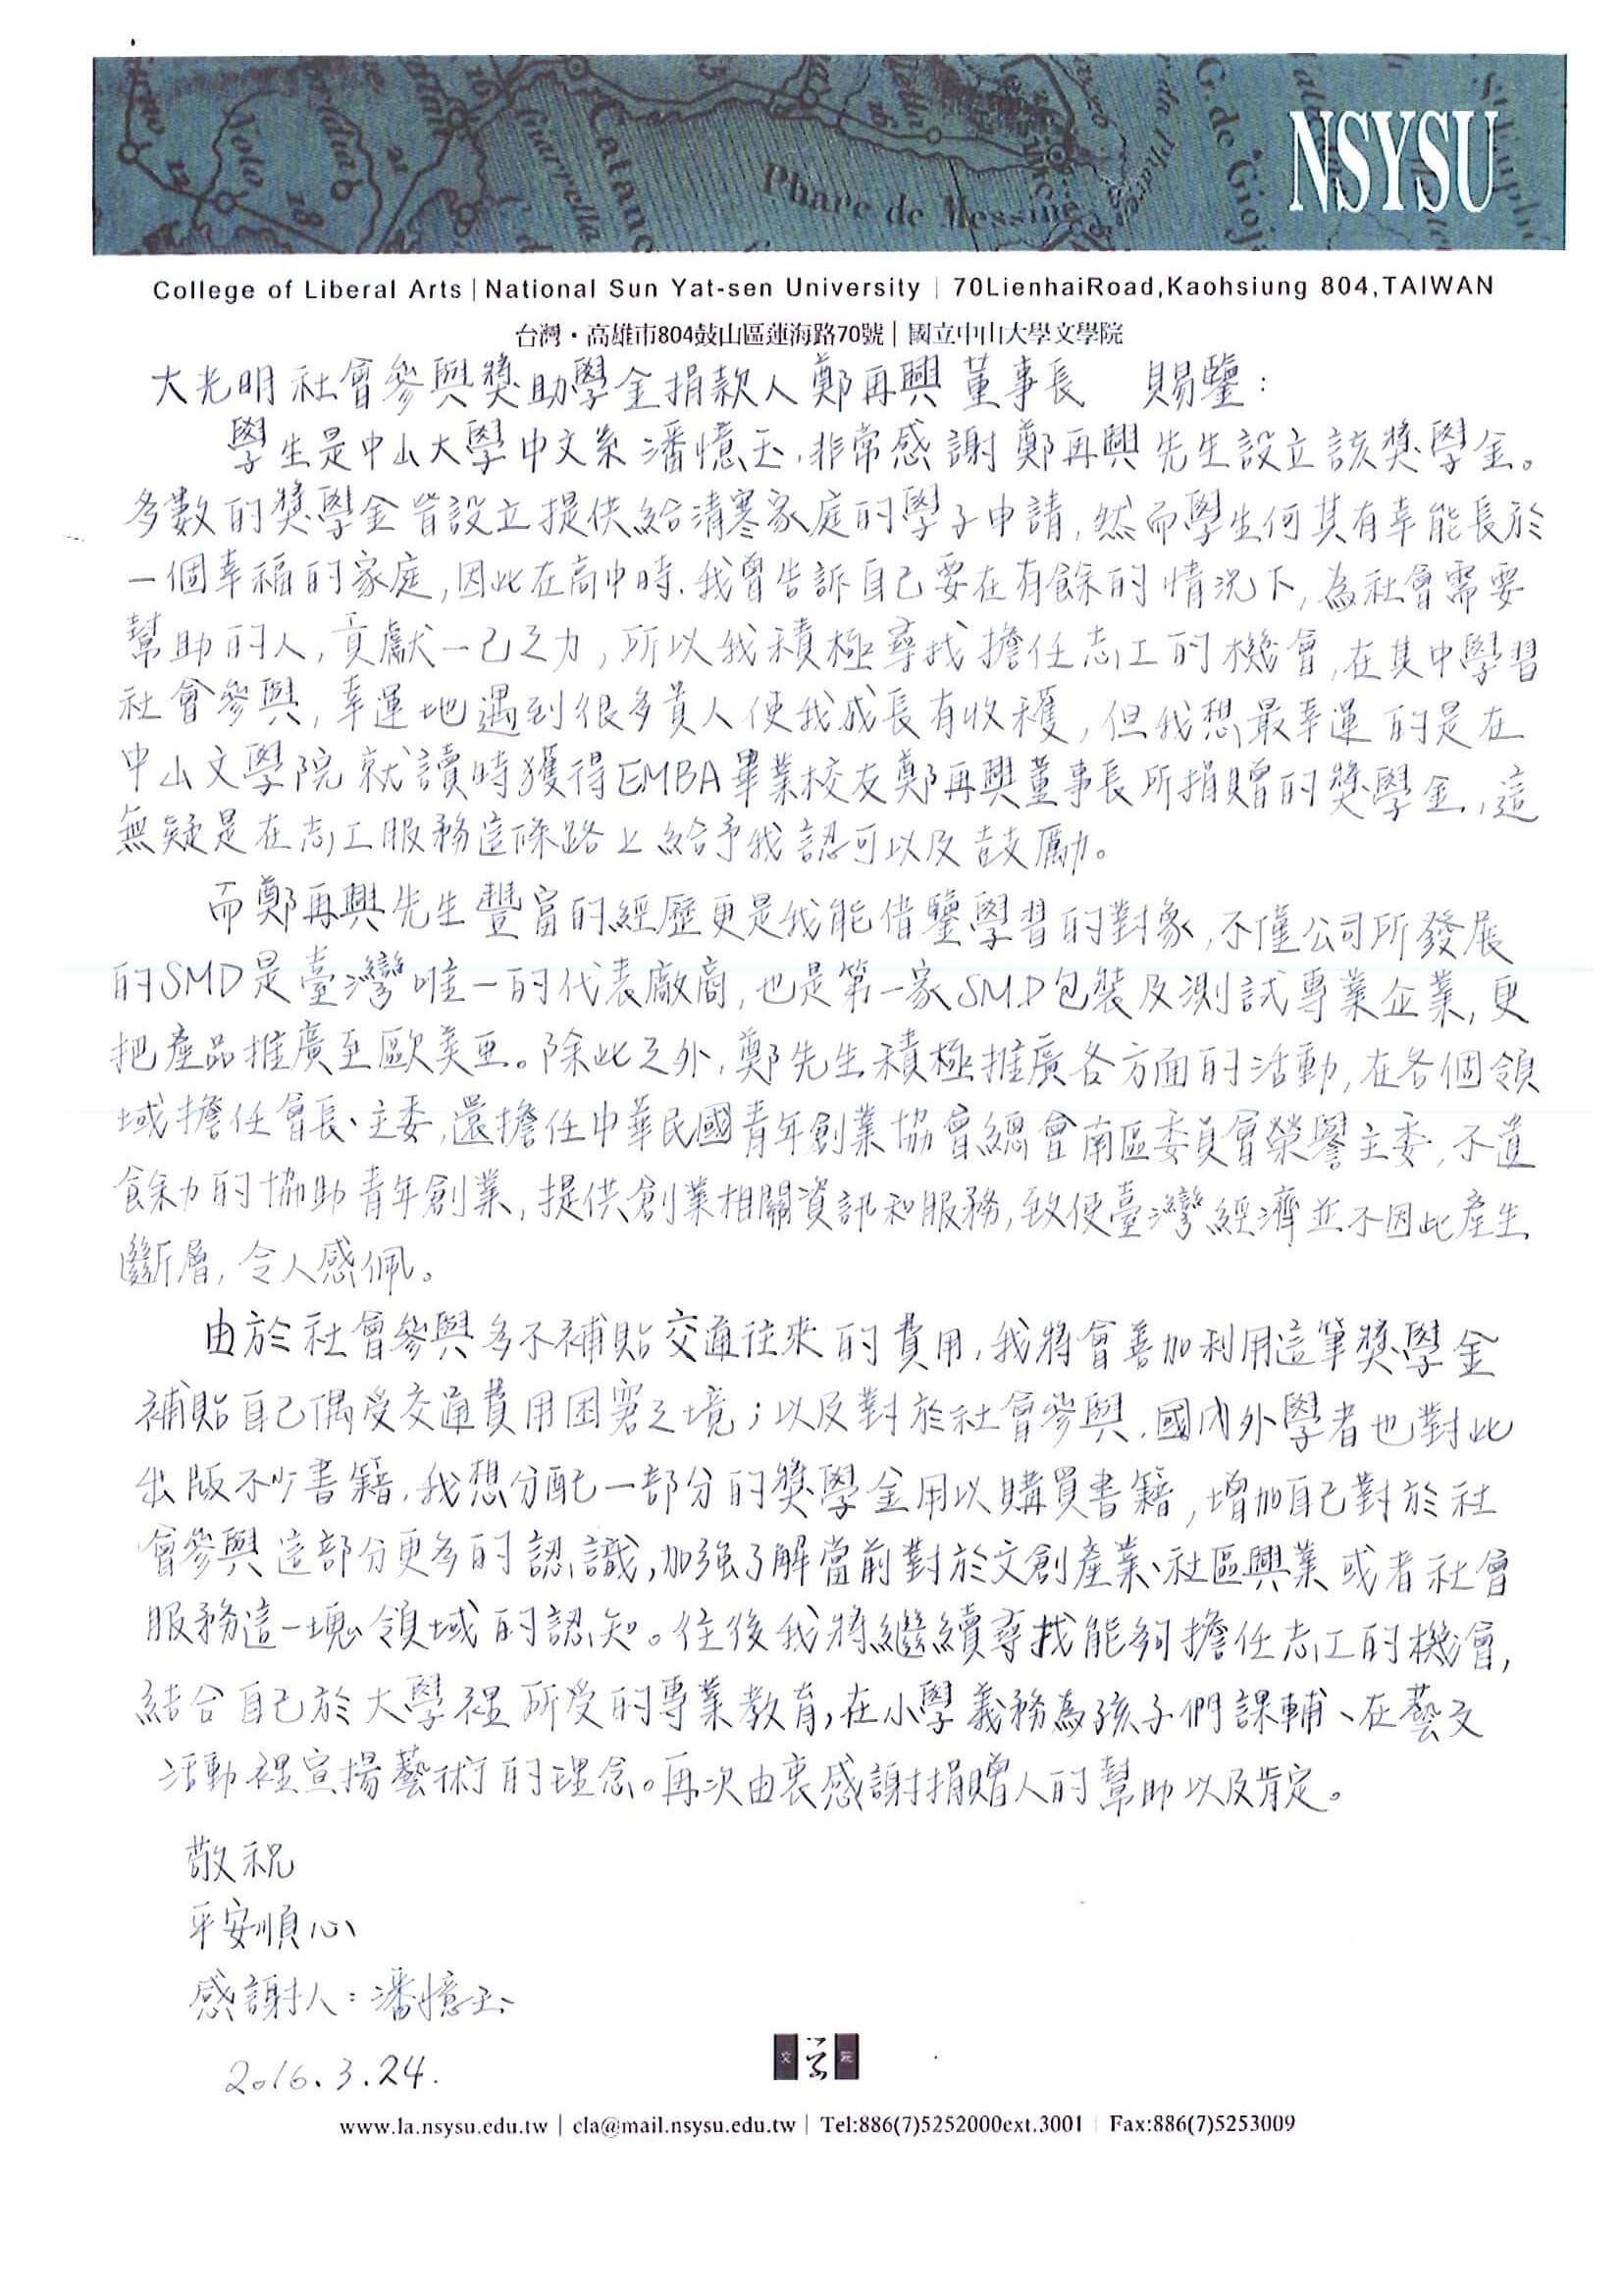 NSYSU
College of Liberal Arts | National Sun Yat-sen University | 70LienhaiRoad,Kaohsiung 804,TAIWAN
台灣・高雄市804鼓山區蓮海路70號 | 國立中山大學文學院
大光明社會參與獎助學金捐款人鄭再興董事長 賜鑒：
學生是中山大學中文系潘憶玉，非常感謝鄭再興先生設立該獎學金。
多數的獎學金皆設立提供給清寒家庭的學子申請，然而學生何其有幸能長於
一個幸福的家庭，因此在高中時，我曾告訴自己要在有餘的情況下，為社會需要
幫助的人，貢獻一己之力，所以我積極尋找擔任志工的機會，在其中學習
社會參與，幸運地遇到很多貴人使我成長有收穫，但我想最幸運的是在
中山文學院就讀時獲得EMBA畢業校友鄭再興董事長所捐贈的獎學金，這
無疑是在志工服務這條路上給予我認可以及鼓勵。
而鄭再興先生豐富的經歷更是我能借鑒學習的對象，不僅公司所發展
的SMD是臺灣唯一的代表廠商，也是第一家SMD包裝及測試專業企業，更
把產品推廣至歐美亞。除此之外，鄭先生積極推廣各方面的活動，在各個領
域擔任會長、主委，還擔任中華民國青年創業協會總會南區委員會榮譽主委，不遺
餘力的協助青年創業，提供創業相關資訊和服務，致使臺灣經濟並不因此產生
斷層，令人感佩。
由於社會參與多不補貼交通往來的費用，我將會善加利用這筆獎學金
補貼自己偶受交通費用困窘之境；以及對於社會參與，國內外學者也對此
出版不少書籍，我想分配一部分的獎學金用以購買書籍，增加自己對於社
會參與這部分更多的認識，加強了解當前對於文創產業、社區興業或者社會
服務這一塊領域的認知。往後我將繼續尋找能夠擔任志工的機會，
結合自己於大學裡所受的專業教育，在小學義務為孩子們課輔、在藝文
活動裡宣揚藝術的理念。再次由衷感謝捐贈人的幫助以及肯定。
敬祝
平安順心
感謝人：潘憶玉
2016.3.24.
文學院
www.la.nsysu.edu.tw | cla@mail.nsysu.edu.tw | Tel:886(7)5252000ext.3001 | Fax:886(7)5253009